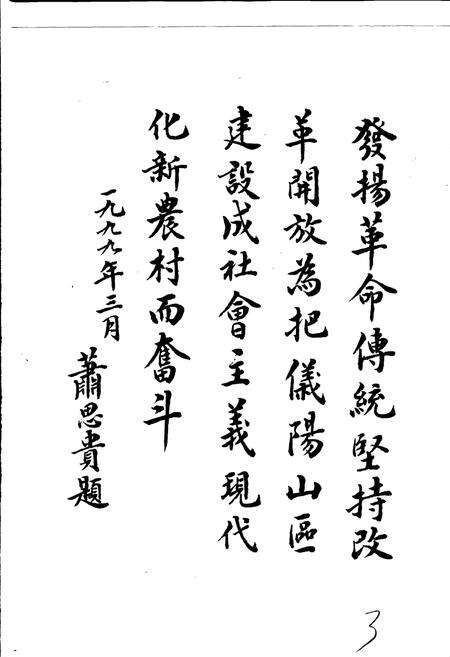 發揚革命傳統堅持改
革開放為把儀陽山區
建設成社會主義現代
化新農村而奮斗
一九九九年三月
蕭思貴題
3